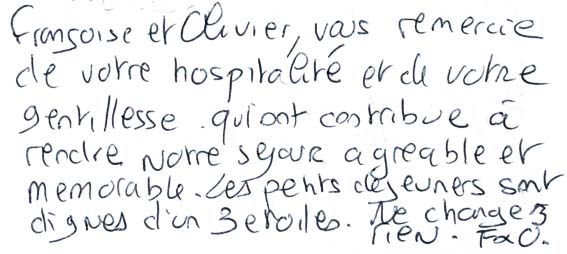 Françoise et Olivier, vous remercie
de votre hospitalité et de votre
gentillesse qui ont contribué à
rendre notre séjour agréable et
memorable. Les petits déjeuners sont
dignes d'un 3 etoiles. Ne changez
rien. F&O.